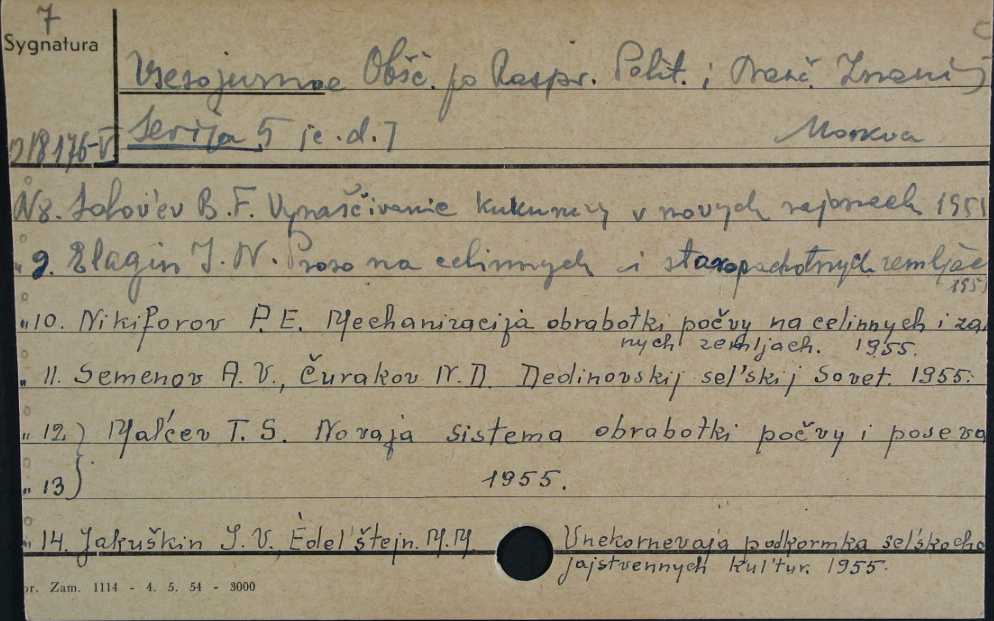 7
Sygnatura
Vsesojuznoe Obšč. po Raspr. Polit. i Nauč. Znanij
Serija 5 je. d. 7 Moskva
218176-V
N 8. Solov'ev B. F. Vyraščivanie kukuruzy v novych rajonach 1955
" 9. Elagin I. N. Proso na celinnych i staropachotnych zemljach
1955
" 10. Nikiforov P. E. Mechanizacija obrabotki počvy na celinnych i za
nych zemljach. 1955.
" 11. Semenov A. V., Čurakov N. D. Dedinovskij sel'skij Sovet. 1955.
" 12 } Mal'cev T. S. Novaja sistema obrabotki počvy i poseva
" 13 } 1955.
" 14. Jakuškin I. V., Èdel'štejn. M. M. Vnekornevaja podkormka sel'skocho
jajstvennych kul'tur. 1955.
or. Zam. 1114 - 4. 5. 54 - 3000